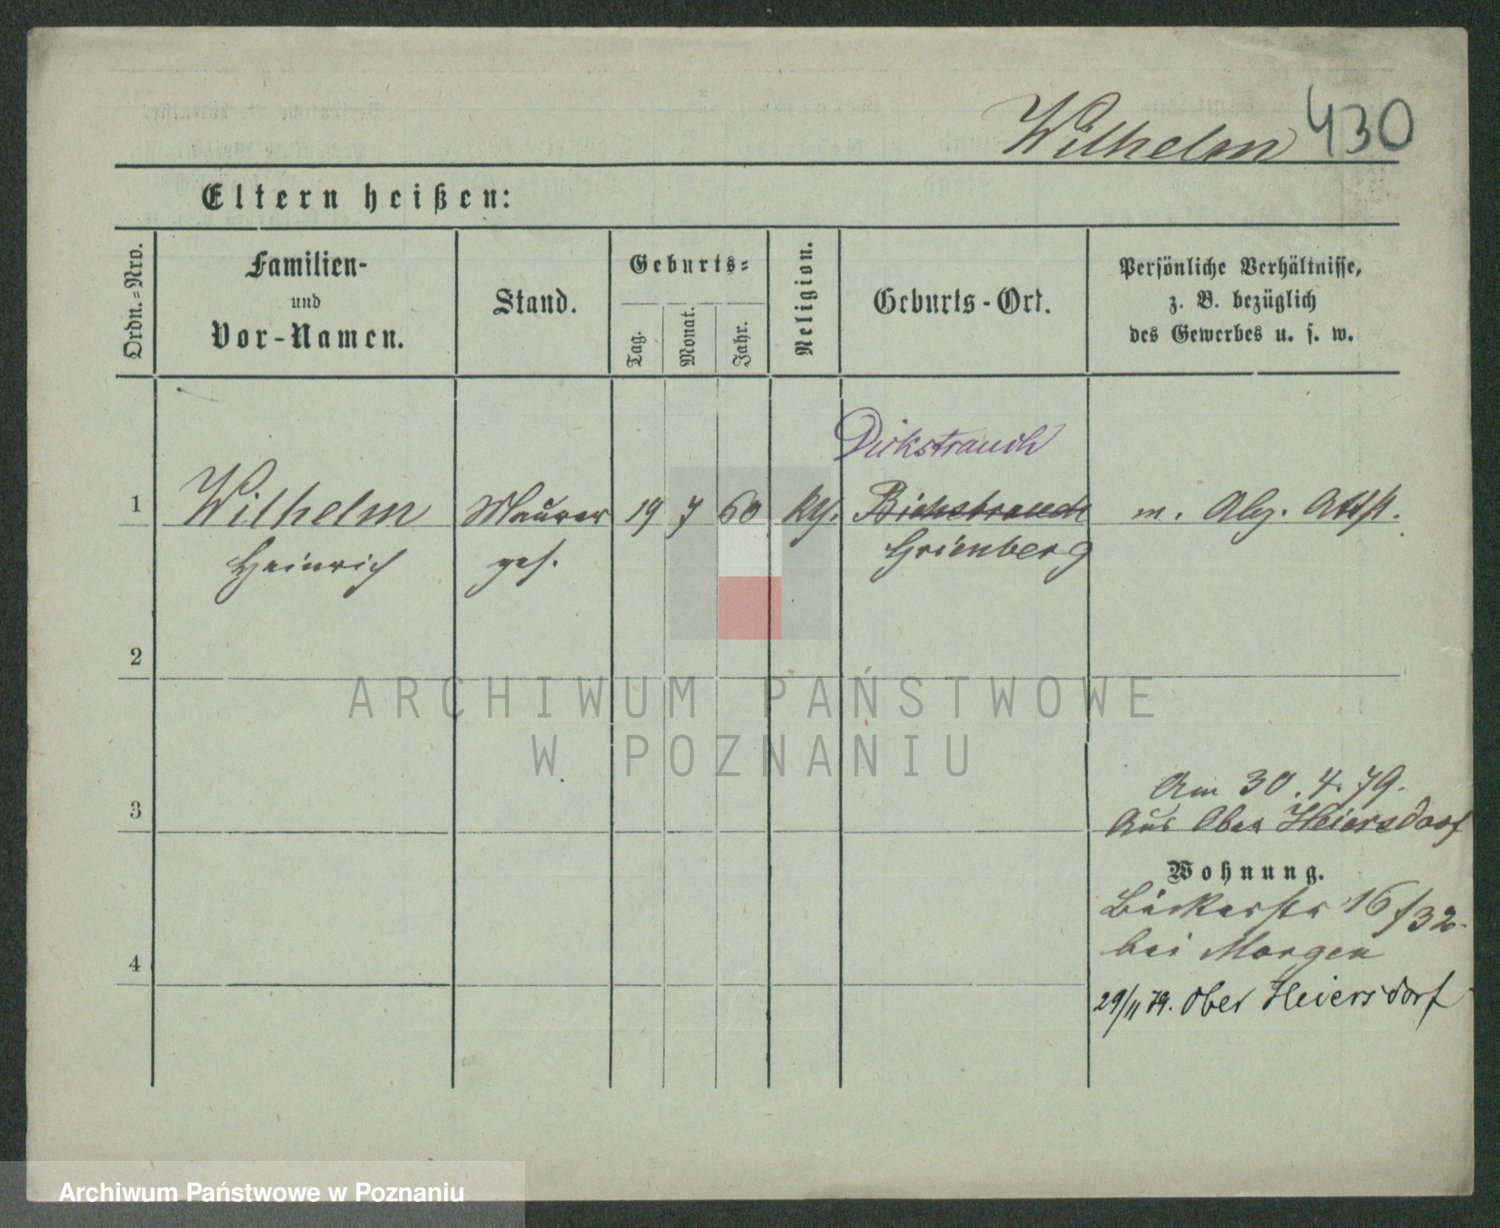 Wilhelm 430
Eltern heißen:
Ordn.=Nro.
Familien-
und
Vor-Namen.
Stand.
Geburts=
Tag.
Monat.
Jahr.
Religion.
Geburts-Ort.
Persönliche Verhältnisse,
z. B. bezüglich
des Gewerbes u. s. w.
Dickstrauch
1 Wilhelm Maurer 19 7 60 m. Abz. Attst.
Heinrich ges. Grienberg
2
ARCHIWUM PAŃSTWOWE
W POZNANIU
Am 30. 4. 79.
3 Aus Ober Heiersdorf
Wohnung.
Bäckerstr 16/32.
bei Morgen
4
29/11 79. Ober Heiersdorf
Archiwum Państwowe w Poznaniu